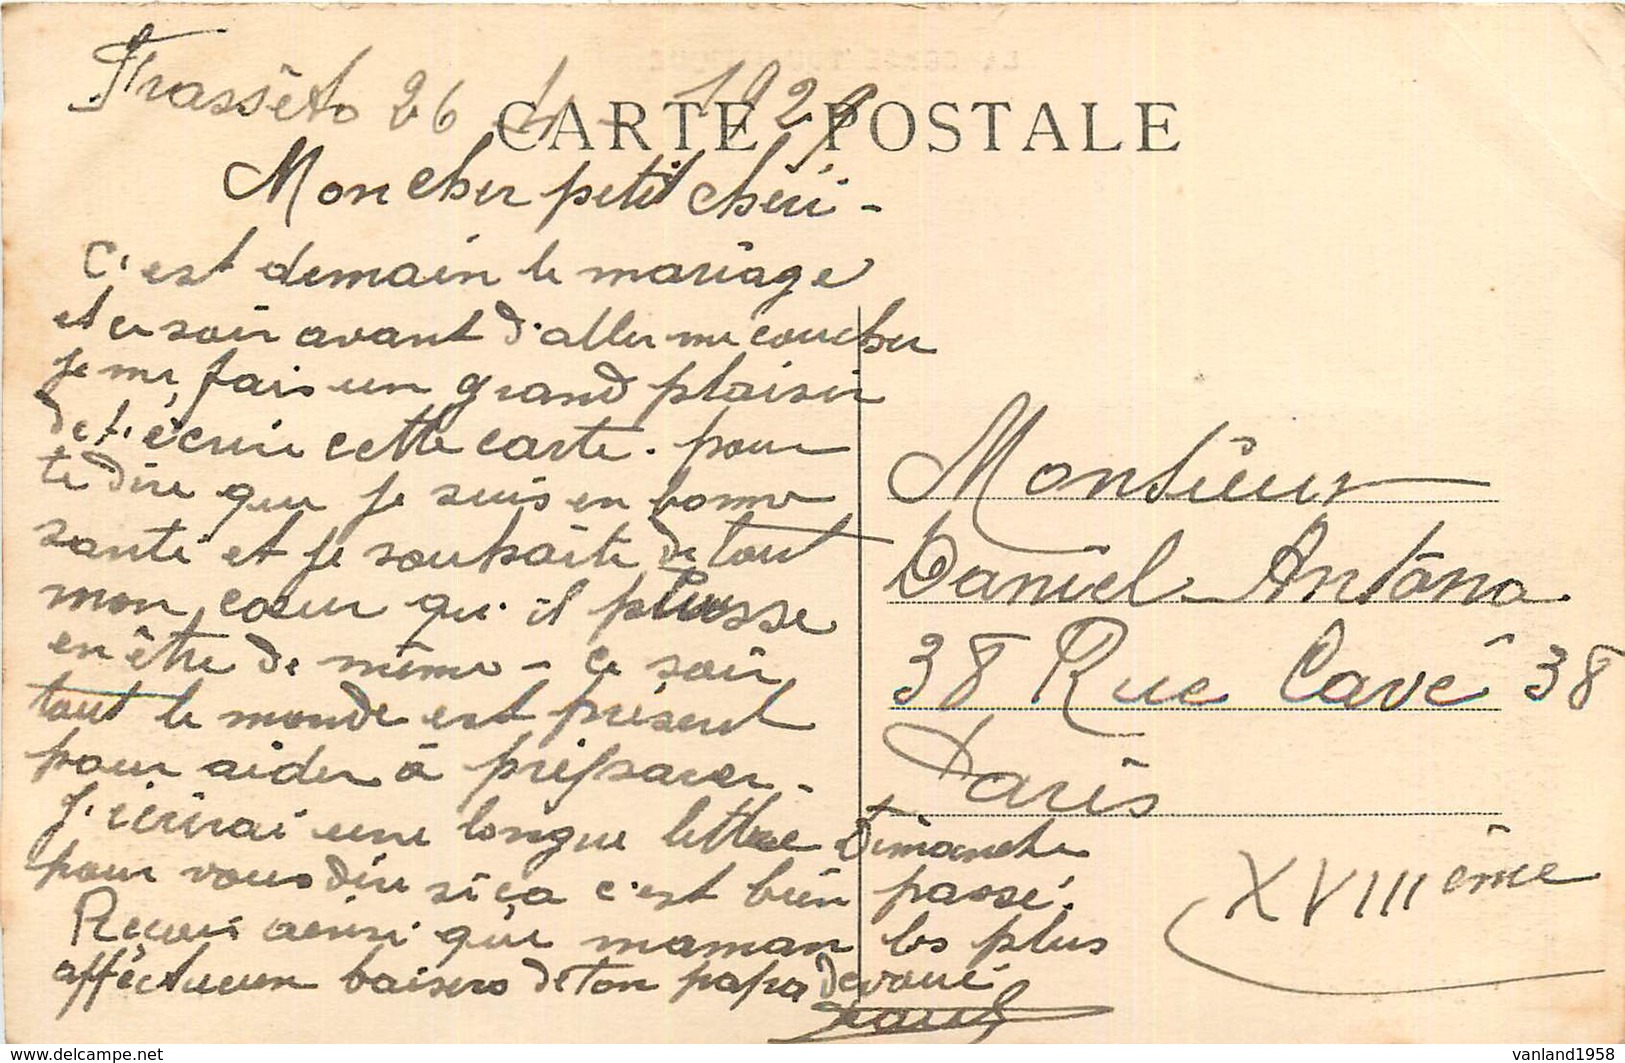 Frasséto 26 4 - 192
CARTE POSTALE
Mon cher petit chéri -
C'est demain le mariage
et ce soir avant d'aller me coucher
je me fais un grand plaisir
de t'écrire cette carte. pour
te dire que je suis en bonne
santé et je souhaite de tout
mon cœur qu'il puisse
en être de même - ce soir
tout le monde est présent
pour aider à préparer.
J'écrirai une longue lettre Dimanche
pour vous dire si ça c'est bien passé.
Reçois ainsi que maman les plus
affectueux baisers de ton papa dévoué
Monsieur
Daniel Antona
38 Rue Cavé 38
Paris
XVIIIème
vanland1958